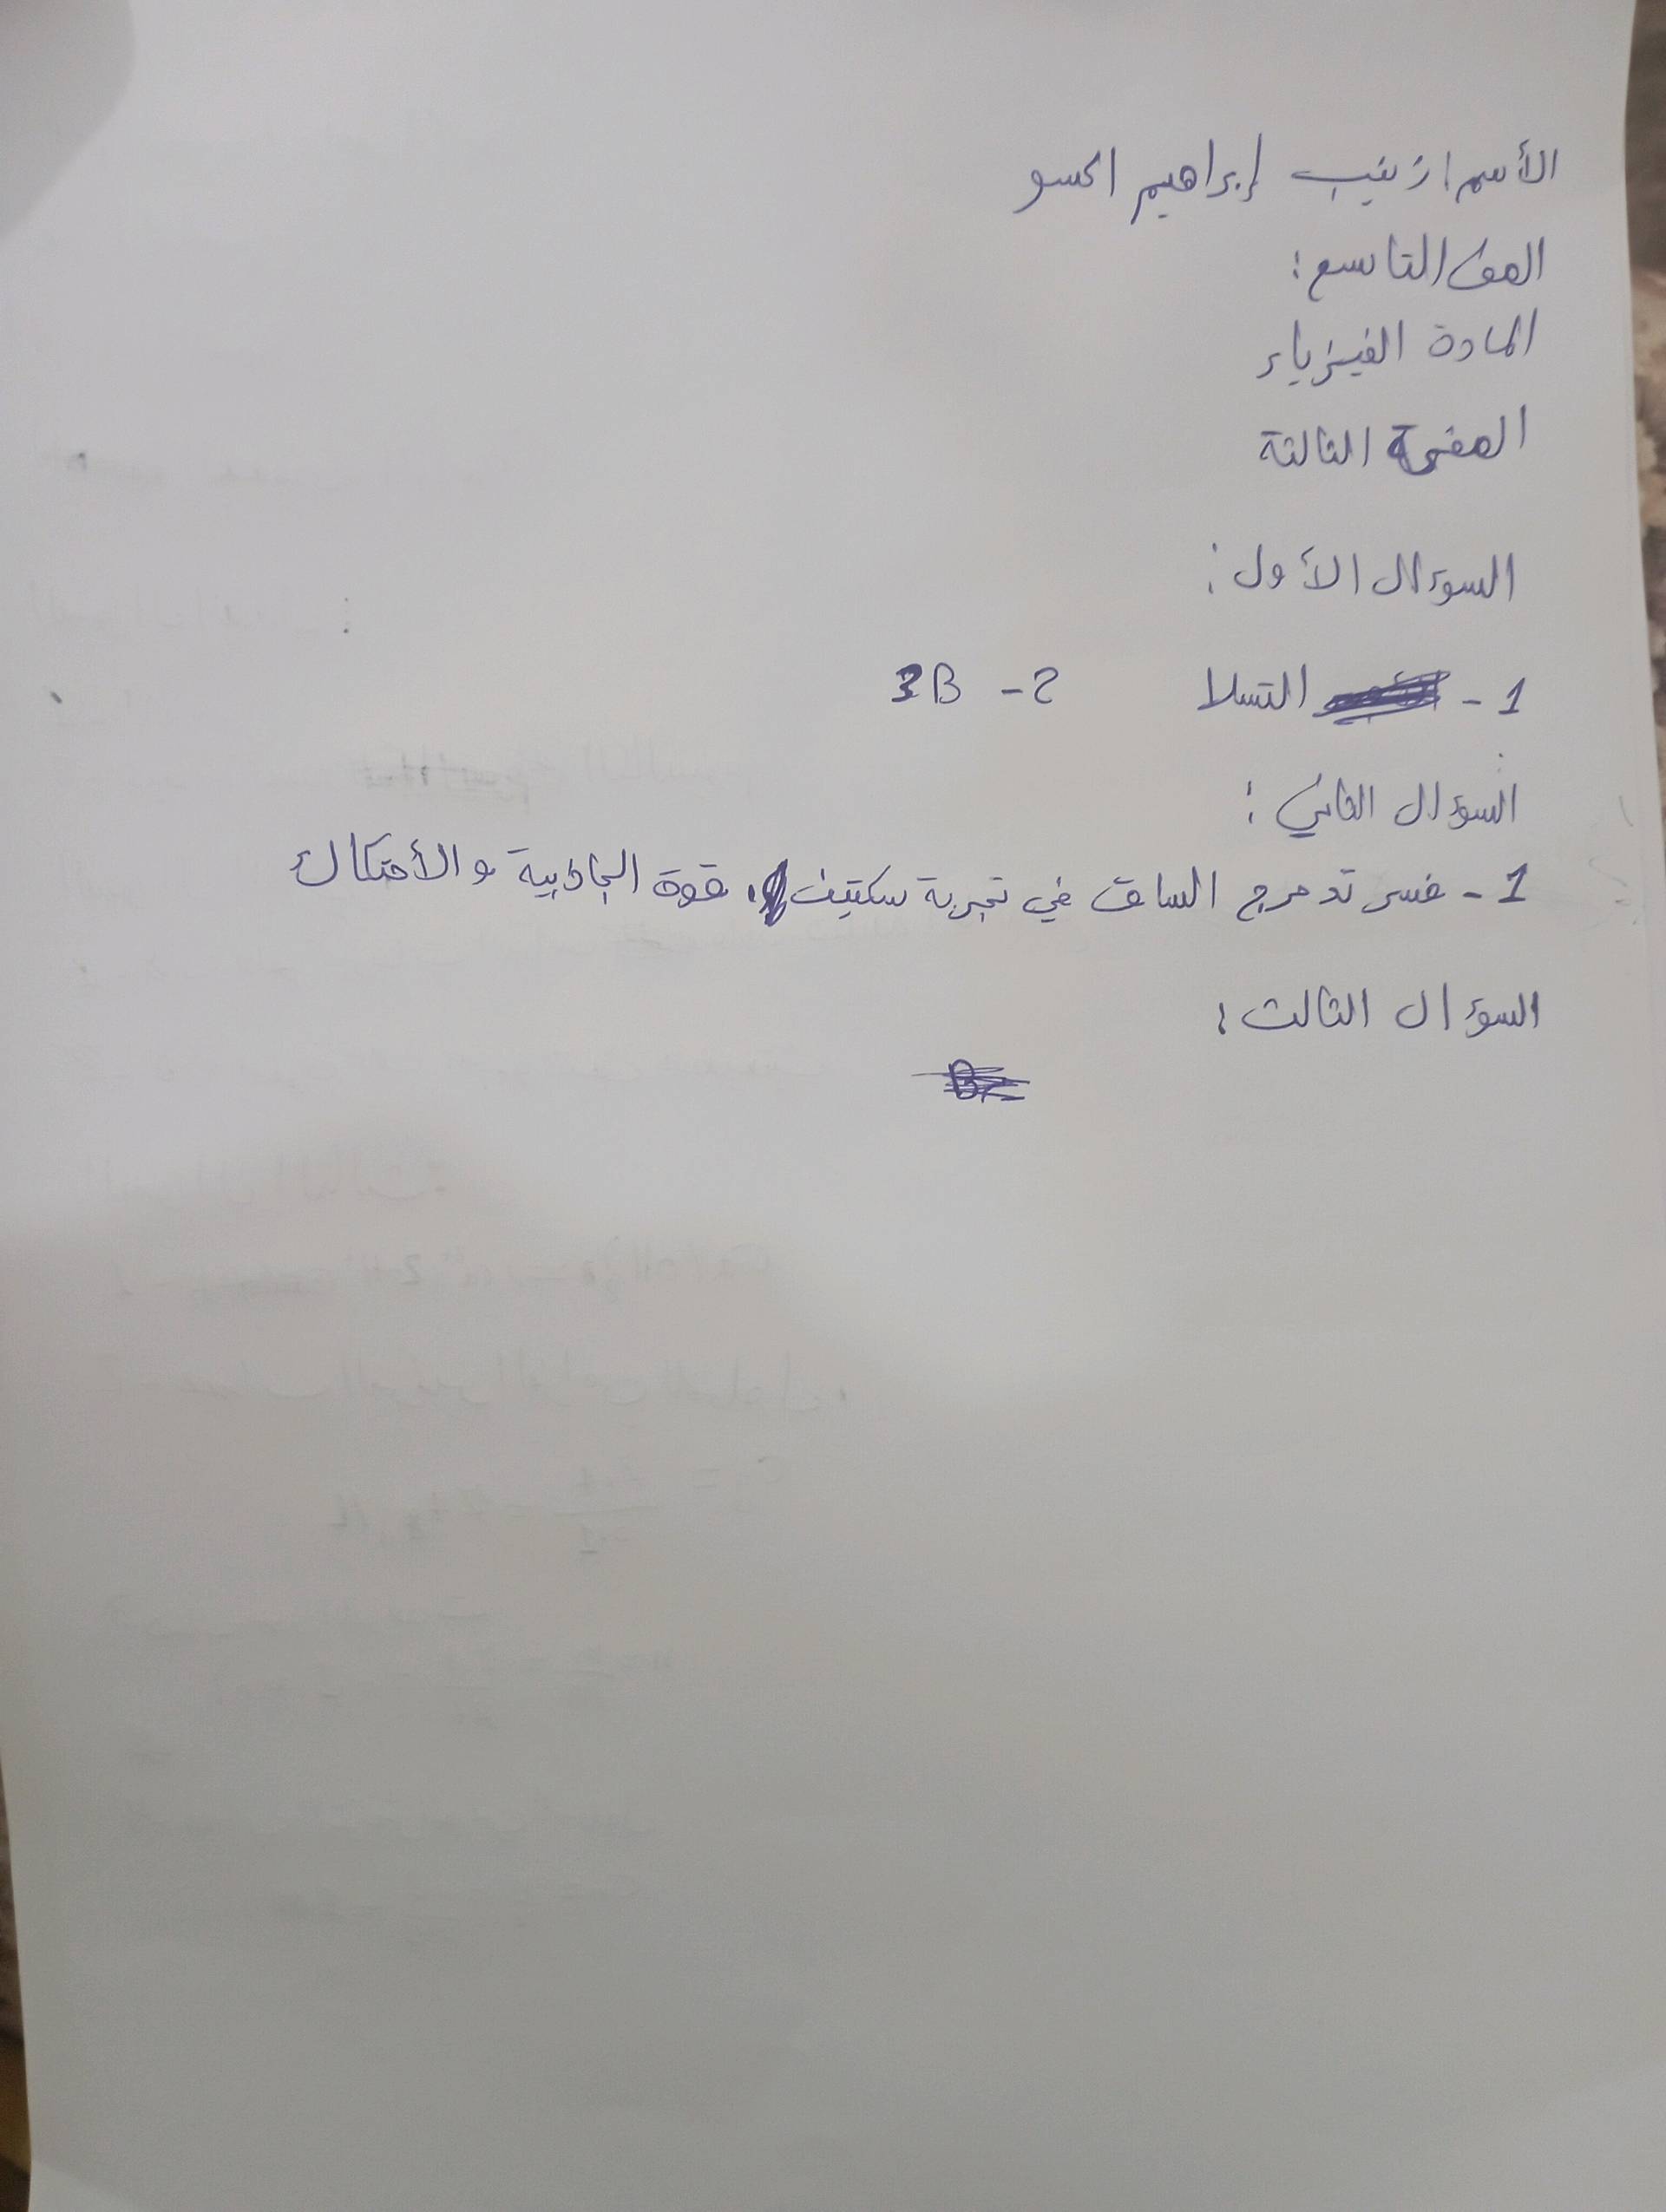 الأسم: زينب إبراهيم الحسو
الصف التاسع:
المادة الفيزياء
الصفحة الثالثة
السؤال الأول:
1 - التسلا 2 - 3B
السؤال الثاني:
1 - فسر تدحرج الساق في تجربة سكتين. قوة الجاذبية والأحتكاك
السؤال الثالث: